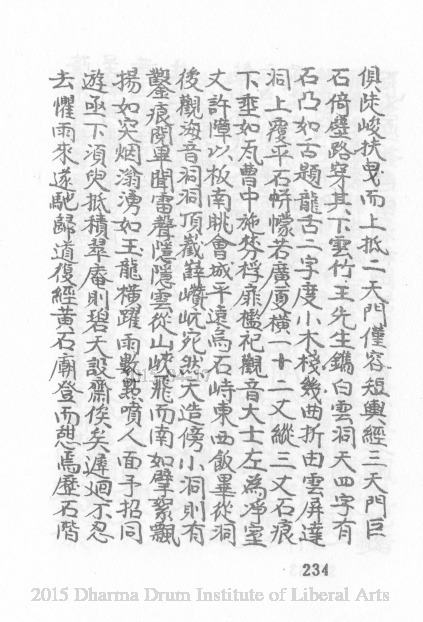 俱陡峻扶曳而上抵二天門僅容短輿經三天門巨
石倚壁路穿其下雲竹王先生鐫白雲洞天四字有
石凸如舌題龍舌二字度小木棧幾曲折由雲屏達
洞上覆平石帡幪若廣廈橫一十二丈縱三丈石痕
下垂如瓦曹中施棼桴扉檻祀觀音大士左為净室
丈許障以板南眺會城平遠烏石峙東西飯畢從洞
後觀海音洞洞頂巀嶭巑岏宛然天造傍小洞則有
鑿痕閱畢聞雷聲隱隱雲從山峽飛而南如擘絮飄
揚如突烟滃湧如玉龍橫躍雨數點噴人面予招同
遊亟下須臾抵積翠庵則碧天設齋俟矣遲迴不忍
去懼雨來遂馳歸道復經黃石廟登而憩焉歷石階
234
2015 Dharma Drum Institute of Liberal Arts